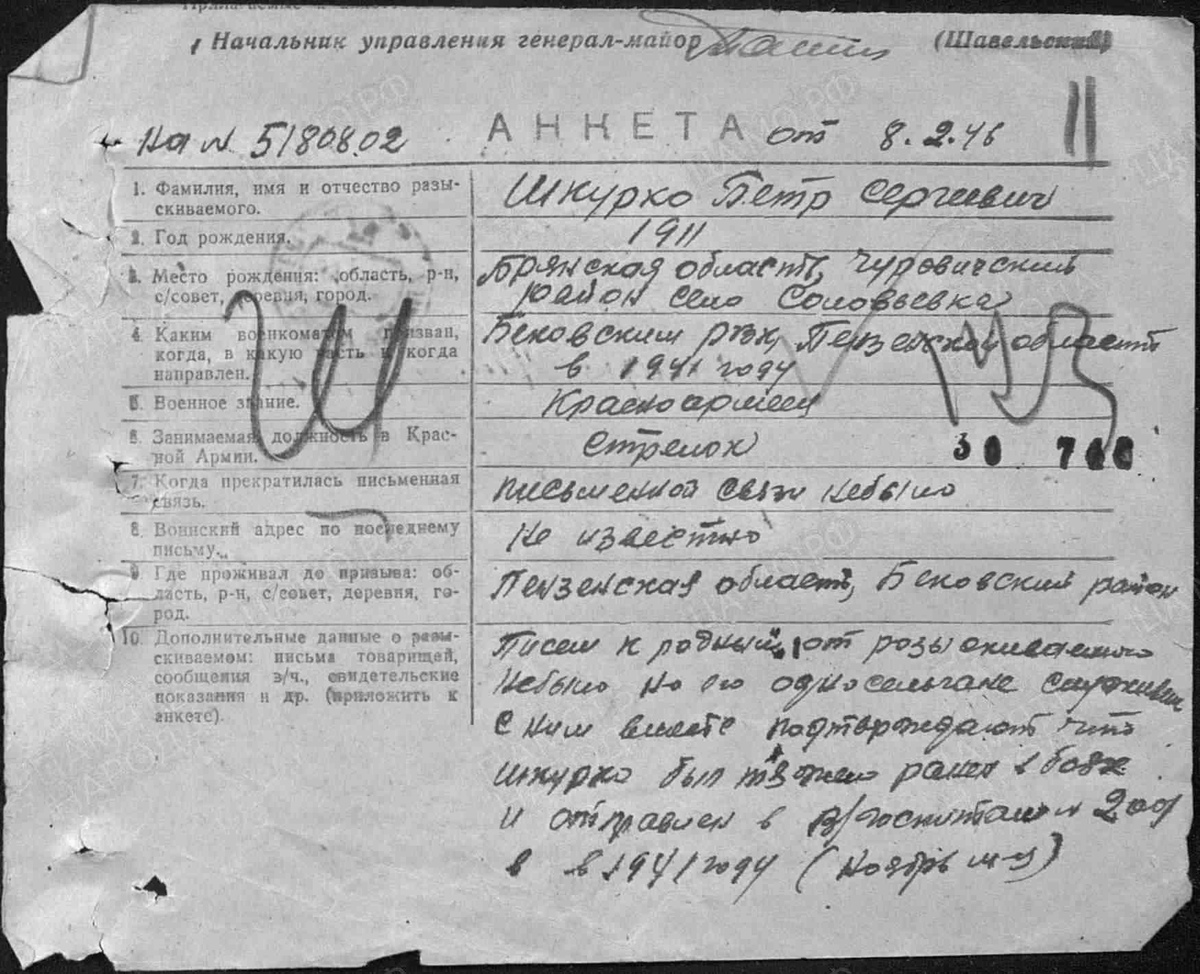 Начальник управления генерал-майор (Шавельский)
На № 5180802 АНКЕТА от 8.2.46 11
1. Фамилия, имя и отчество разы-
скиваемого.
Шкурко Петр Сергеевич
2. Год рождения.
1911
3. Место рождения: область, р-н,
с/совет, деревня, город.
Брянская область, Чуровичский
район село Соловьевка
4. Каким военкоматом призван,
когда, в какую часть и когда
направлен.
Бековским рвк, Пензенской области
в 1941 году
5. Военное звание.
Красноармеец
6. Занимаемая должность в Крас-
ной Армии.
Стрелок
7. Когда прекратилась письменная
связь.
письменной связи небыло
8. Воинский адрес по последнему
письму.
Не известно
9. Где проживал до призыва: об-
ласть, р-н, с/совет, деревня, го-
род.
Пензенская область, Бековский район
10. Дополнительные данные о разы-
скиваемом: письма товарищей,
сообщения в/ч., свидетельские
показания и др. (приложить к
анкете).
Писем к родным от розыскиваемого
небыло но его односельчане служившие
с ним вместе подтверждают что
Шкурко был тяжело ранен в боях
и отправлен в в/госпиталь №
в 1941 году (ноябрь м-ц)
Ш